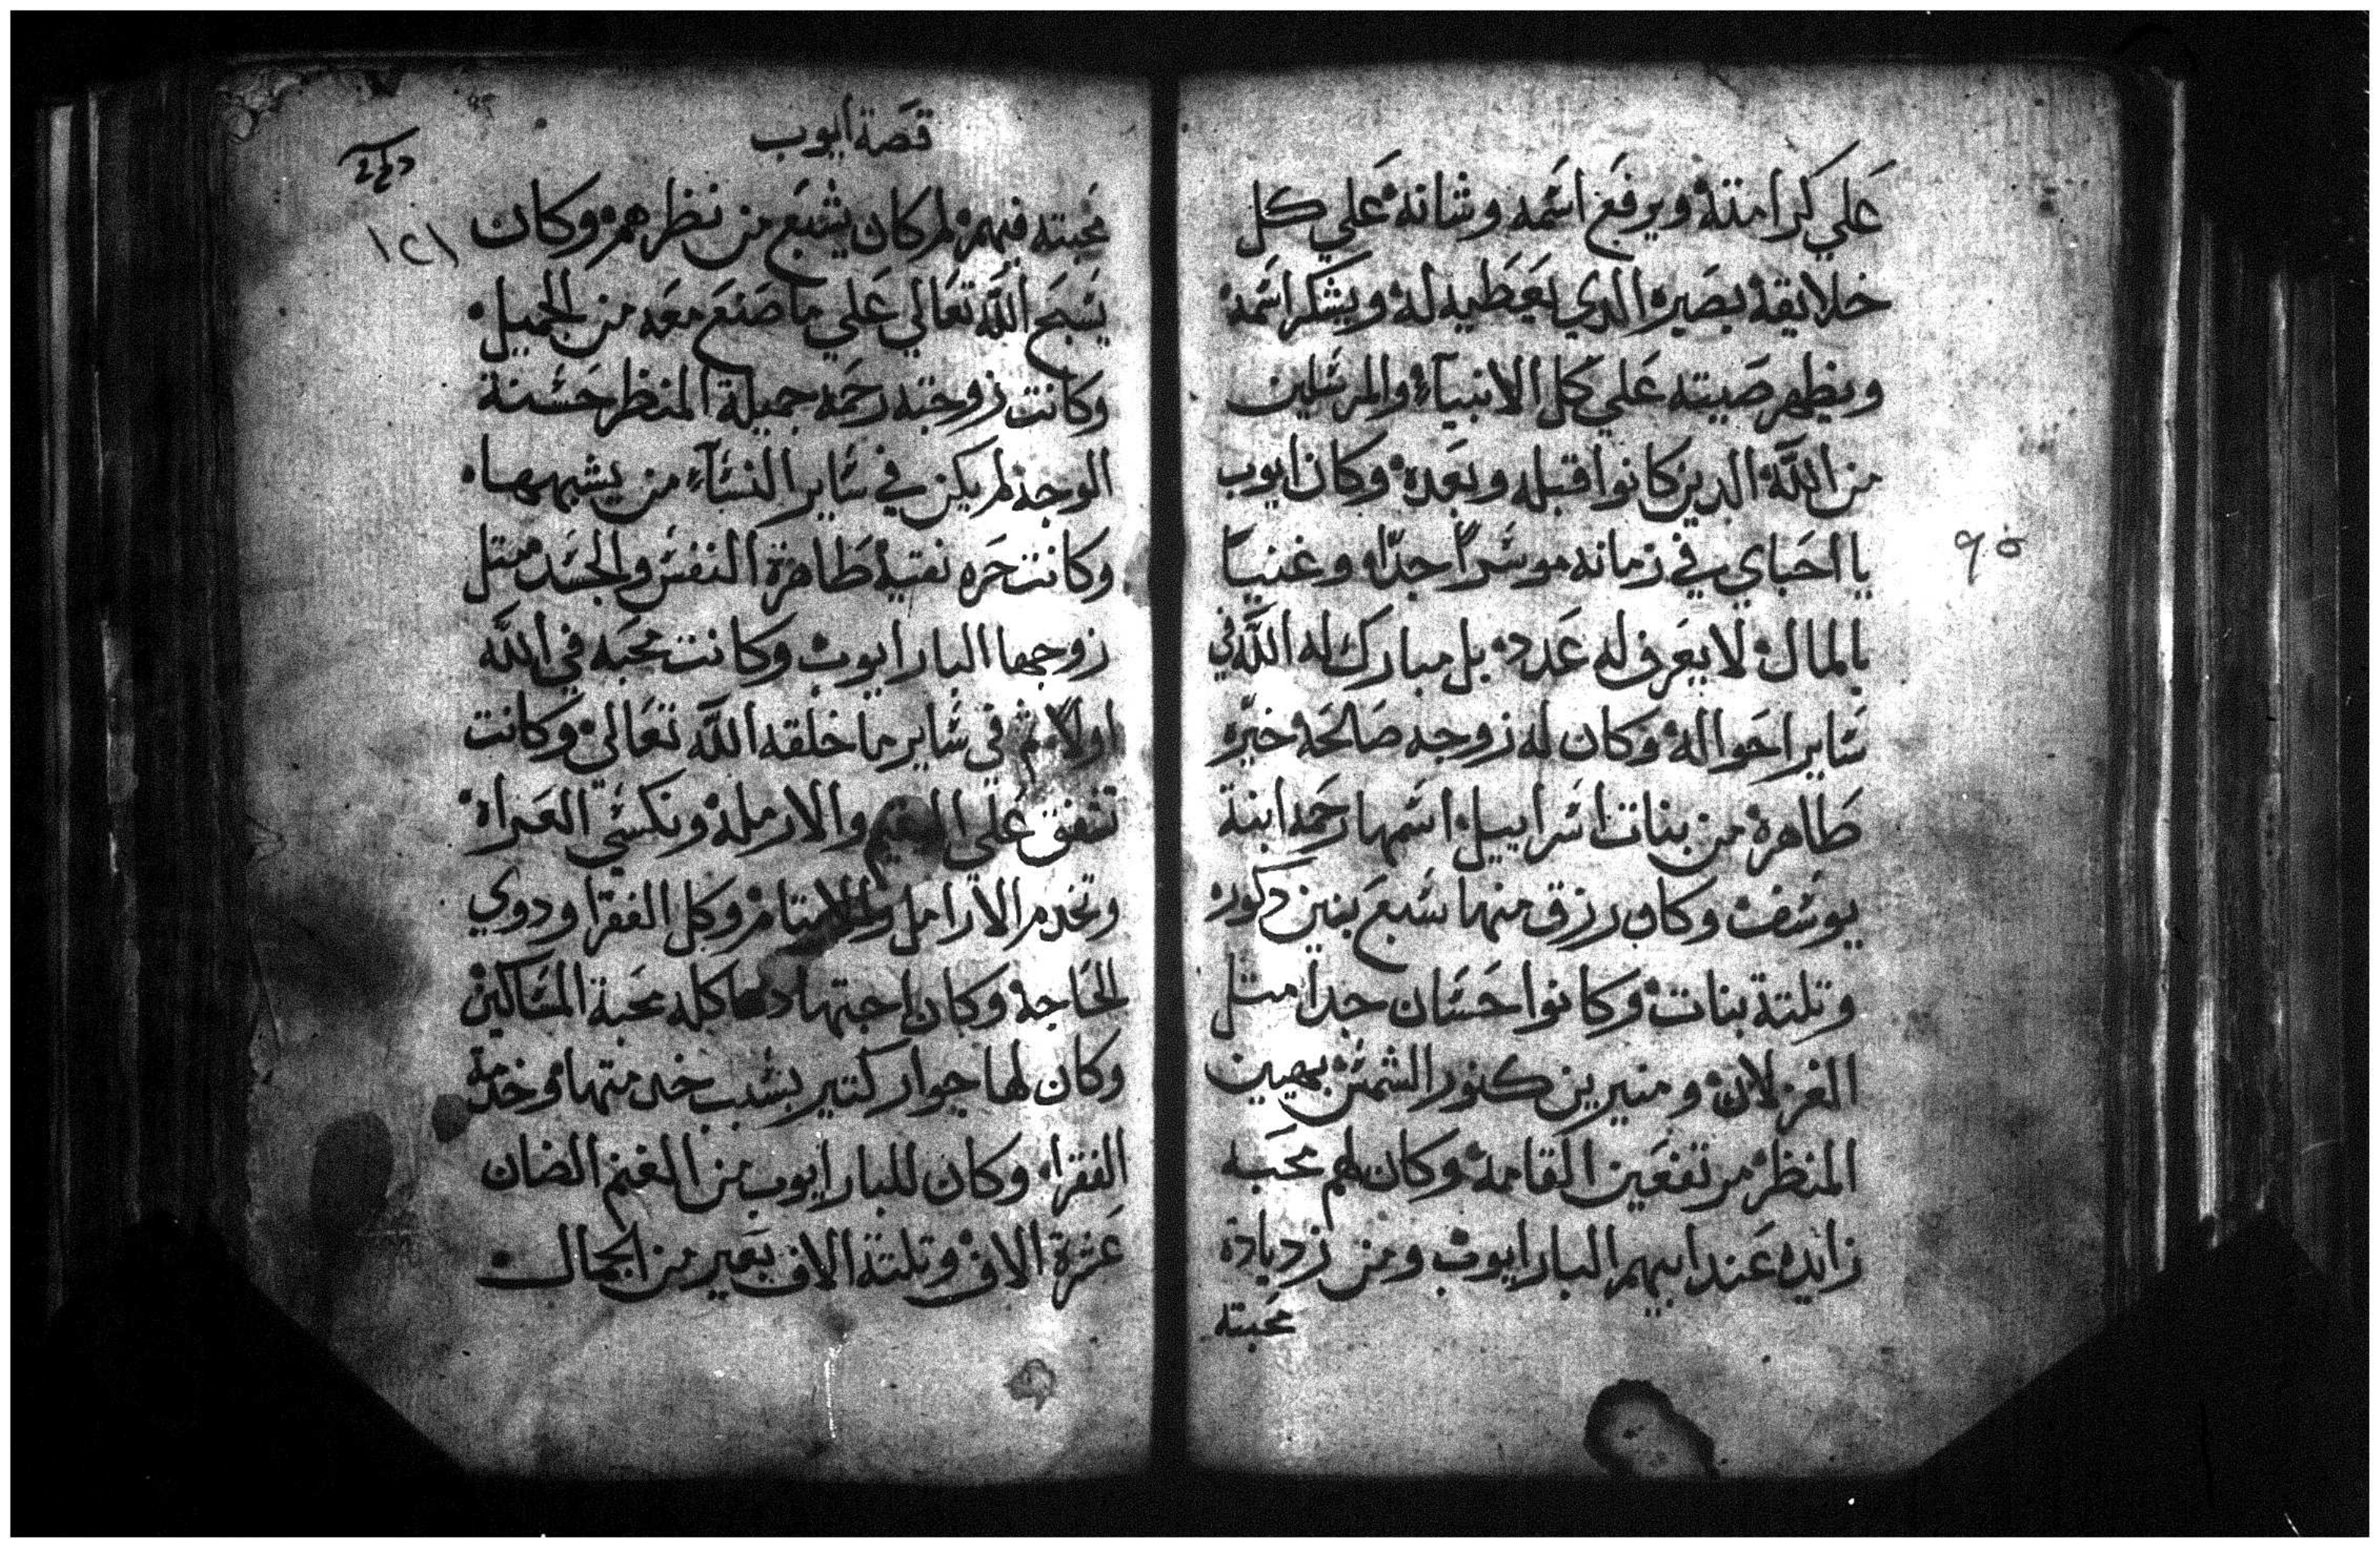 علي كرامته ويرفع اسمه وشانه علي كل
خلايقه بصبره الدي يعطيه له ويشكر اسمه
ويظهر صيته علي كل الانبيآء والمرسلين
من اللّه الدين كانوا قبله وبعده وكان ايوب
يا احباي في زمانه موسراً جدّا وغنياً
بالمال لا يعرف له عدد بل مبارك له اللّه في
ساير احواله وكان له زوجه صالحه خيّره
طاهره من بنات اسراييل اسمها رحمه ابنة
يوسف وكان رزق منها سبع بنين دكور
وتلتة بنات وكانوا حسان جداً متل
الغزلان ومنيرين كنور الشمس بهيين
المنظر مرتفعين القامه وكان لهم محبه
زايده عند ابيهم البار ايوب ومن زديادة
محبته
٩٥
قصة ايوب
١٢١
محبته فيهم لم كان يشبع من نظرهم وكان
يسبح اللّه تعالي علي ما صنع معه من الجميل
وكانت زوجته رحمه جميلة المنظر حسنة
الوجه لم يكن في ساير النسآء من يشبهها
وكانت حره نقيه طاهرة النفس والجسد متل
زوجها البار ايوب وكانت محبه في اللّه
اولاً ثم في ساير ما خلقه اللّه تعالي وكانت
تنفق علي اليتيم والارمله وتكسي العراه
وتخدم الارامل والايتام وكل الفقرا ودوي
الحاجه وكان اجتهادها كله محبة المساكين
وكان لها جوار كتير بسبب خدمتها وخدمة
الفقرا وكان للبار ايوب من الغنم الضان
عشرة الاف وتلتة الاف بعير من الجمال